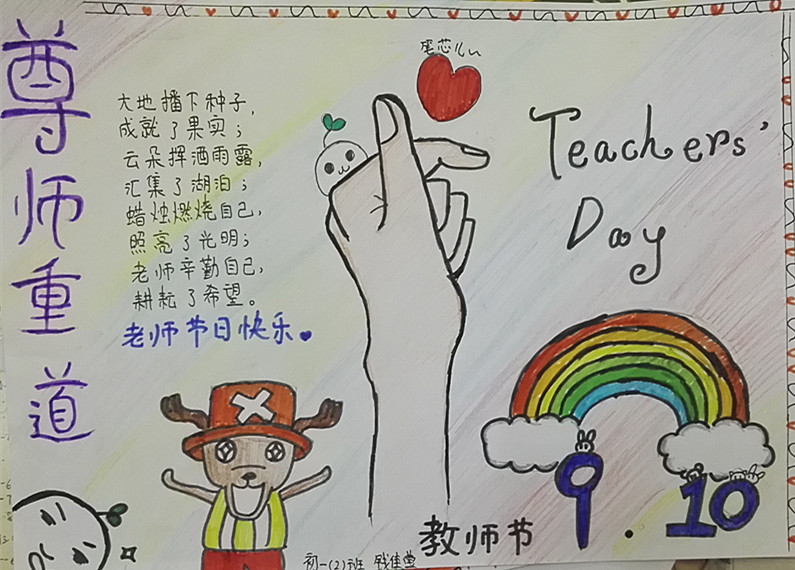 尊师重道
大地播下种子，
成就了果实；
云朵挥洒雨露，
汇集了湖泊；
蜡烛燃烧自己，
照亮了光明；
老师辛勤自己，
耕耘了希望。
老师节日快乐
Teachers'
Day
9.10
教师节
初一(2)班